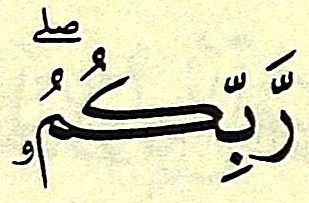 رَّبِّكُمُۥۖ